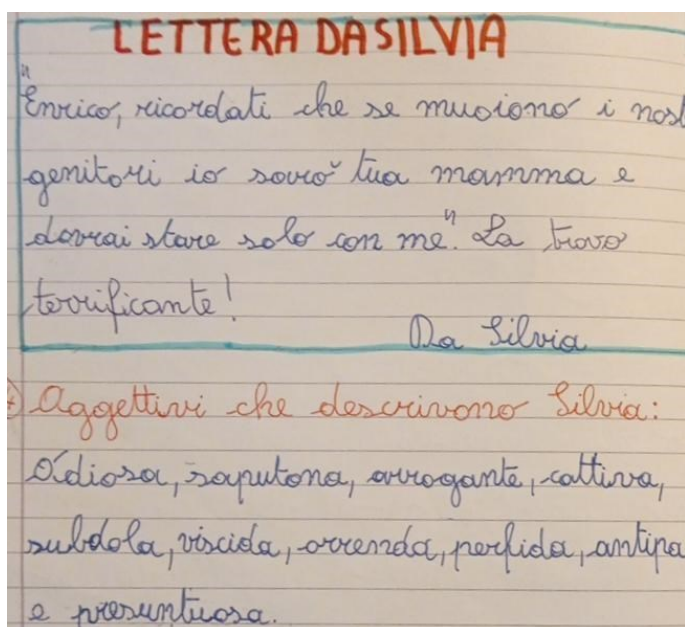 LETTERA DA SILVIA
"Enrico, ricordati che se muoiono i nost
genitori io sarò tua mamma e
dovrai stare solo con me". La trovo
terrificante!
Da Silvia
Aggettivi che descrivono Silvia:
Odiosa, saputona, arrogante, cattiva,
subdola, viscida, orrenda, perfida, antipa
e presuntuosa.